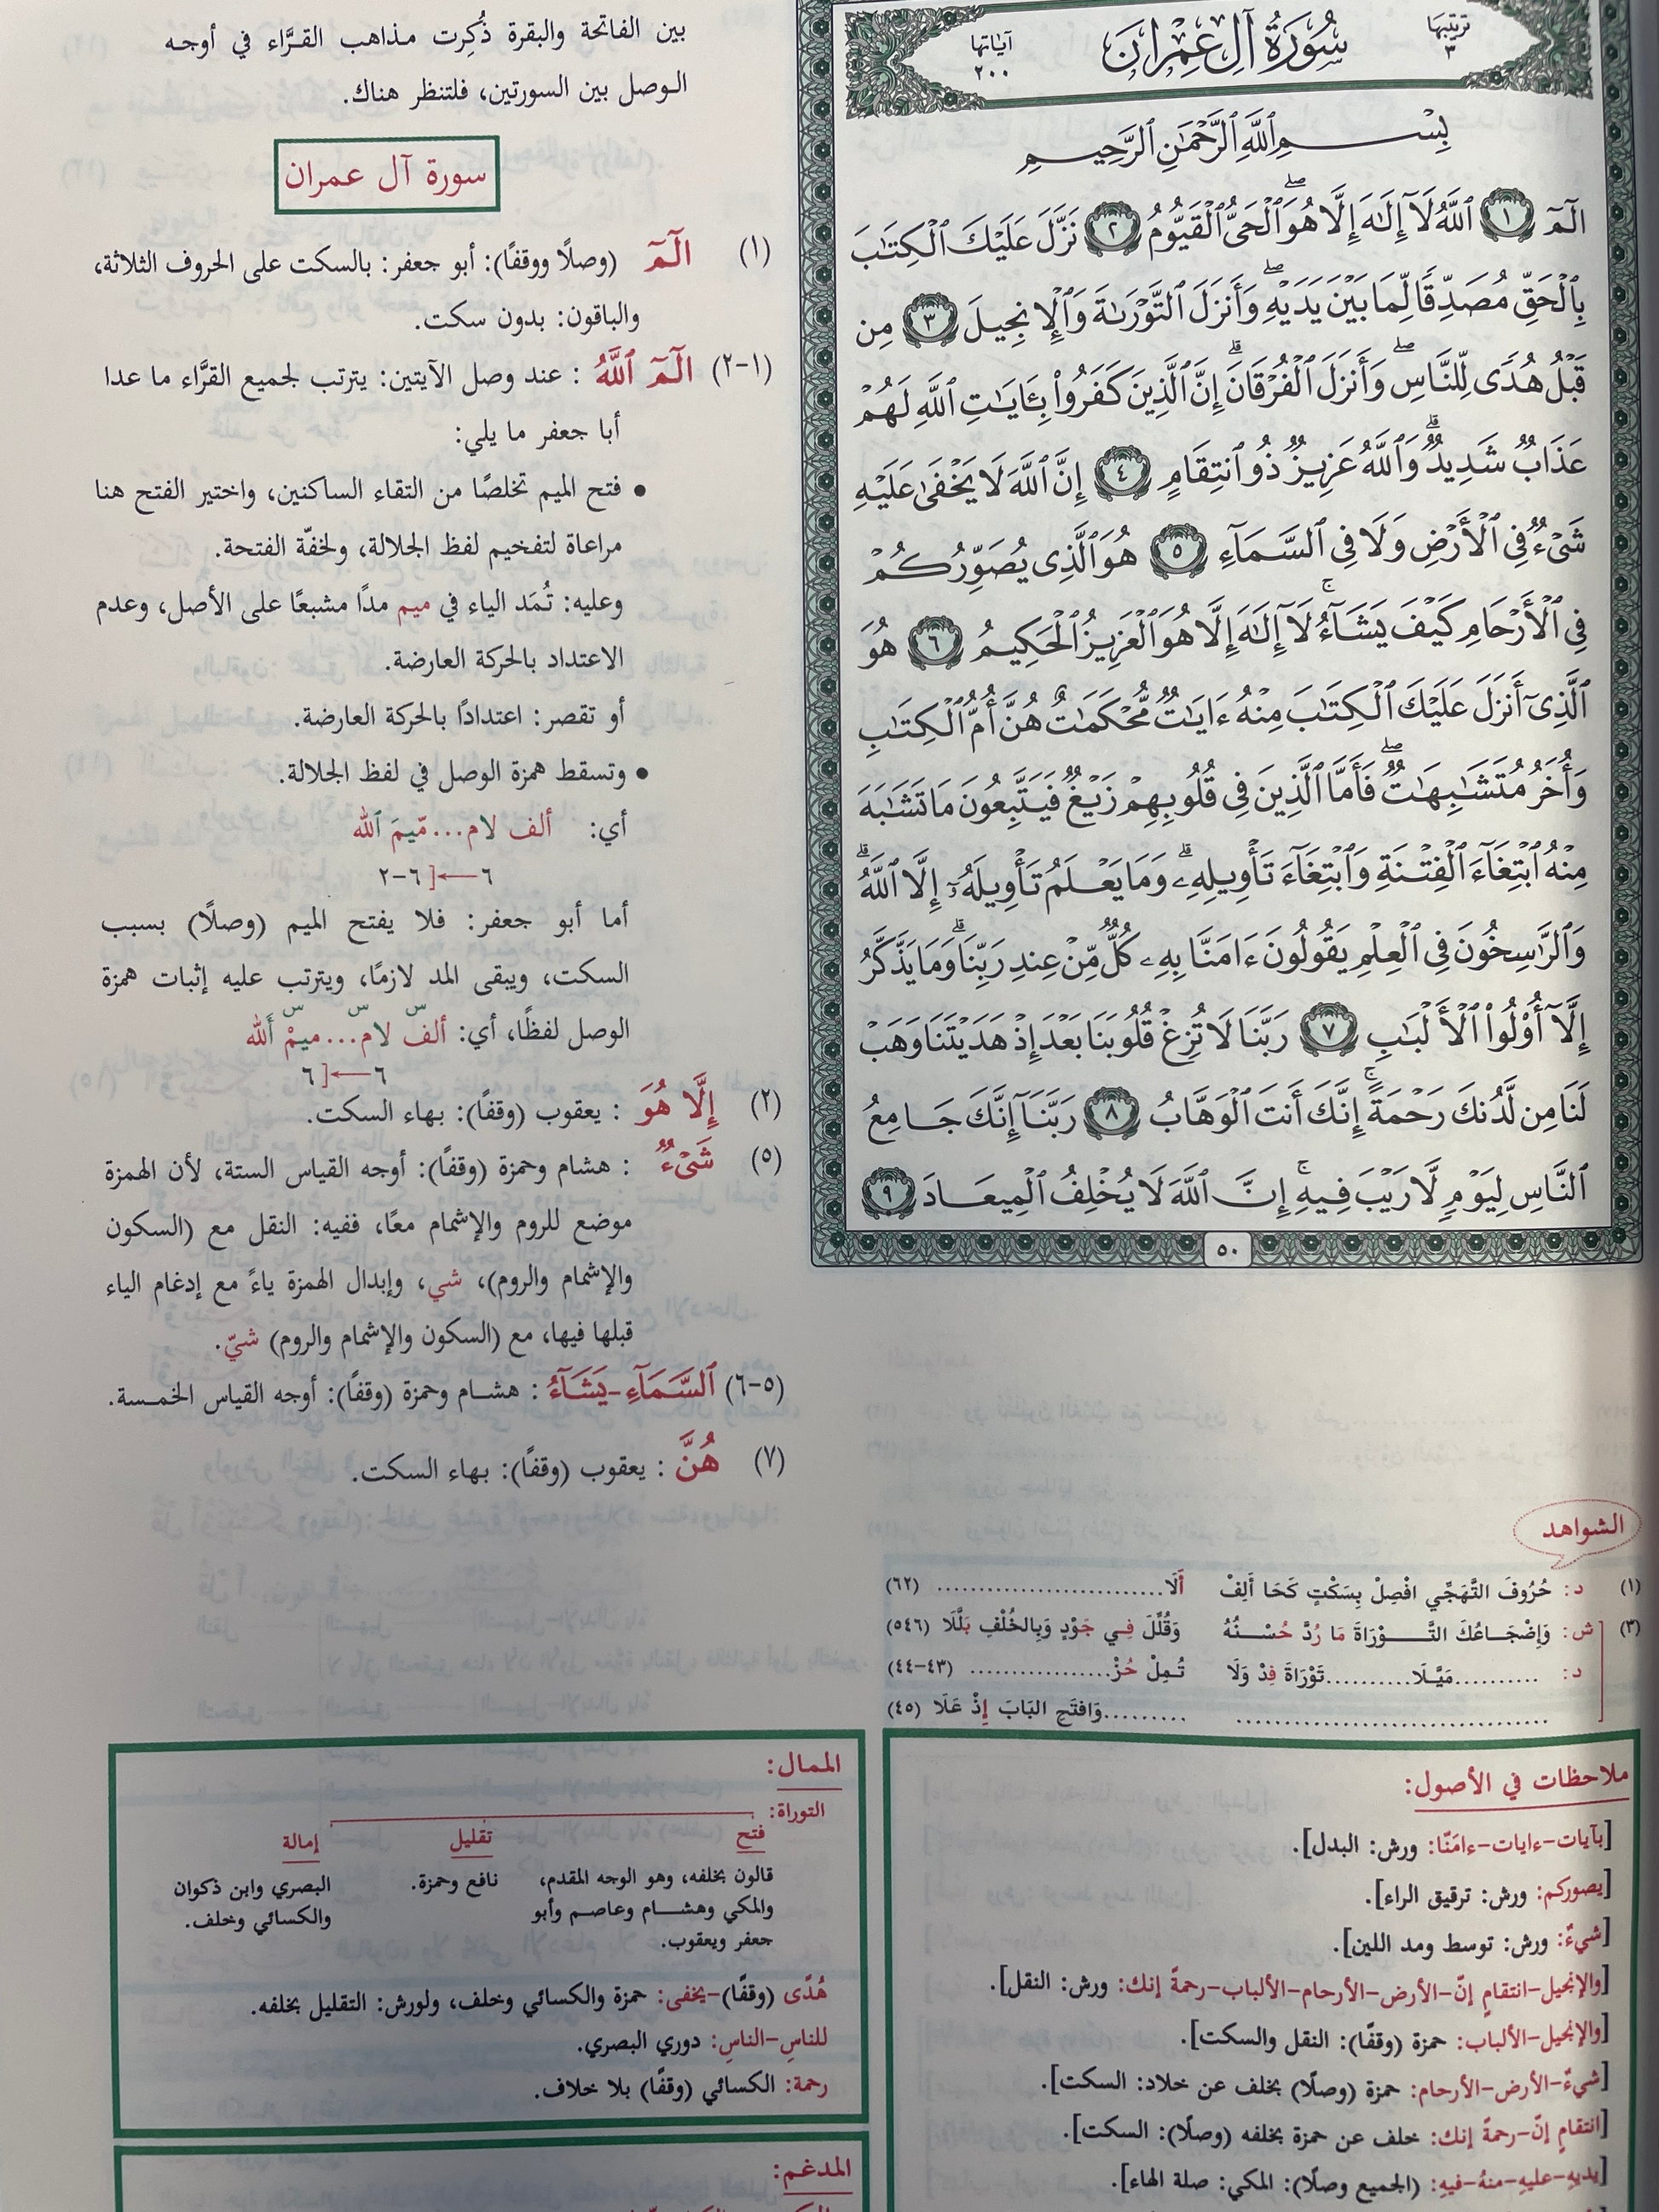 ترتيبها
٣
سُورَةُ آلِ عِمْرَانَ
آياتها
٢٠٠
بِسْمِ ٱللَّهِ ٱلرَّحْمَٰنِ ٱلرَّحِيمِ
الٓمٓ ١ ٱللَّهُ لَآ إِلَٰهَ إِلَّا هُوَ ٱلْحَىُّ ٱلْقَيُّومُ ٢ نَزَّلَ عَلَيْكَ ٱلْكِتَٰبَ
بِٱلْحَقِّ مُصَدِّقًا لِّمَا بَيْنَ يَدَيْهِ وَأَنزَلَ ٱلتَّوْرَىٰةَ وَٱلْإِنجِيلَ ٣ مِن
قَبْلُ هُدًى لِّلنَّاسِ وَأَنزَلَ ٱلْفُرْقَانَ إِنَّ ٱلَّذِينَ كَفَرُوا۟ بِـَٔايَٰتِ ٱللَّهِ لَهُمْ
عَذَابٌ شَدِيدٌ وَٱللَّهُ عَزِيزٌ ذُو ٱنتِقَامٍ ٤ إِنَّ ٱللَّهَ لَا يَخْفَىٰ عَلَيْهِ
شَىْءٌ فِى ٱلْأَرْضِ وَلَا فِى ٱلسَّمَآءِ ٥ هُوَ ٱلَّذِى يُصَوِّرُكُمْ
فِى ٱلْأَرْحَامِ كَيْفَ يَشَآءُ لَآ إِلَٰهَ إِلَّا هُوَ ٱلْعَزِيزُ ٱلْحَكِيمُ ٦ هُوَ
ٱلَّذِىٓ أَنزَلَ عَلَيْكَ ٱلْكِتَٰبَ مِنْهُ ءَايَٰتٌ مُّحْكَمَٰتٌ هُنَّ أُمُّ ٱلْكِتَٰبِ
وَأُخَرُ مُتَشَٰبِهَٰتٌ فَأَمَّا ٱلَّذِينَ فِى قُلُوبِهِمْ زَيْغٌ فَيَتَّبِعُونَ مَا تَشَٰبَهَ
مِنْهُ ٱبْتِغَآءَ ٱلْفِتْنَةِ وَٱبْتِغَآءَ تَأْوِيلِهِۦ وَمَا يَعْلَمُ تَأْوِيلَهُۥٓ إِلَّا ٱللَّهُ
وَٱلرَّٰسِخُونَ فِى ٱلْعِلْمِ يَقُولُونَ ءَامَنَّا بِهِۦ كُلٌّ مِّنْ عِندِ رَبِّنَا وَمَا يَذَّكَّرُ
إِلَّآ أُو۟لُوا۟ ٱلْأَلْبَٰبِ ٧ رَبَّنَا لَا تُزِغْ قُلُوبَنَا بَعْدَ إِذْ هَدَيْتَنَا وَهَبْ
لَنَا مِن لَّدُنكَ رَحْمَةً إِنَّكَ أَنتَ ٱلْوَهَّابُ ٨ رَبَّنَآ إِنَّكَ جَامِعُ
ٱلنَّاسِ لِيَوْمٍ لَّا رَيْبَ فِيهِ إِنَّ ٱللَّهَ لَا يُخْلِفُ ٱلْمِيعَادَ ٩
٥٠
بين الفاتحة والبقرة ذُكِرت مذاهب القرَّاء في أوجه
الوصل بين السورتين، فلتنظر هناك.
سورة آل عمران
(١) الٓمٓ (وصلًا ووقفًا): أبو جعفر: بالسكت على الحروف الثلاثة،
والباقون: بدون سكت.
(١-٢) الٓمٓ ٱللَّهُ : عند وصل الآيتين: يترتب لجميع القرَّاء ما عدا
أبا جعفر ما يلي:
• فتح الميم تخلصًا من التقاء الساكنين، واختير الفتح هنا
مراعاة لتفخيم لفظ الجلالة، ولخفّة الفتحة.
وعليه: تُمَد الياء في ميم مدًا مشبعًا على الأصل، وعدم
الاعتداد بالحركة العارضة.
أو تقصر: اعتدادًا بالحركة العارضة.
• وتسقط همزة الوصل في لفظ الجلالة.
أي: ألف لام...مّيمَ ٱلله
٦ ←[ ٦-٢
أما أبو جعفر: فلا يفتح الميم (وصلًا) بسبب
السكت، ويبقى المد لازمًا، ويترتب عليه إثبات همزة
س س س
الوصل لفظًا، أي: ألف لام...ميمْ أَلله
٦ ←[ ٦
(٢) إِلَّا هُوَ : يعقوب (وقفًا): بهاء السكت.
(٥) شَىْءٌ : هشام وحمزة (وقفًا): أوجه القياس الستة، لأن الهمزة
موضع للروم والإشمام معًا، ففيه: النقل مع (السكون
والإشمام والروم)، شي، وإبدال الهمزة ياءً مع إدغام الياء
قبلها فيها، مع (السكون والإشمام والروم) شيّ.
(٥-٦) ٱلسَّمَآءِ-يَشَآءُ : هشام وحمزة (وقفًا): أوجه القياس الخمسة.
(٧) هُنَّ : يعقوب (وقفًا): بهاء السكت.
الشواهد
(١) د: حُرُوفَ التَّهَجِّي افْصِلْ بِسَكْتٍ كَحَا أَلِفْ أَلَا............................ (٦٢)
(٣) ش: وَإِضْجَاعُكَ التَّوْرَاةَ مَا رُدَّ حُسْنُهُ وَقُلِّلَ فِي جَوْدٍ وَبِالخُلْفِ بَلَّلَا (٥٤٦)
د: ..........مَيَّلَا..........تَوْرَاةَ فِدْ وَلَا تُمِلْ حُزْ.................. (٤٣-٤٤)
.................................... ..........وَافتَحِ البَابَ إِذْ عَلَا (٤٥)
ملاحظات في الأصول:
[بآيات-ءايات-ءامَنّا: ورش: البدل].
[يصوركم: ورش: ترقيق الراء].
[شيءٌ: ورش: توسط ومد اللين].
[والإنجيل-انتقامٍ إنّ-الأرض-الأرحام-الألباب-رحمةً إنك: ورش: النقل].
[والإنجيل-الألباب: حمزة (وقفًا): النقل والسكت].
[شيءٌ-الأرض-الأرحام: حمزة (وصلًا) بخلف عن خلاد: السكت].
[انتقامٍ إنّ-رحمةً إنك: خلف عن حمزة بخلفه (وصلًا): السكت].
[يديهِ-عليهِ-منهُ-فيهِ: (الجميع وصلًا): المكي: صلة الهاء].
الممال:
التوراة:
فتح تقليل إمالة
قالون بخلفه، وهو الوجه المقدم، نافع وحمزة. البصري وابن ذكوان
والمكي وهشام وعاصم وأبو والكسائي وخلف.
جعفر ويعقوب.
هُدًى (وقفًا)-يخفى: حمزة والكسائي وخلف، ولورش: التقليل بخلفه.
للناسِ-الناسِ: دوري البصري.
رحمة: الكسائي (وقفًا) بلا خلاف.
المدغم: